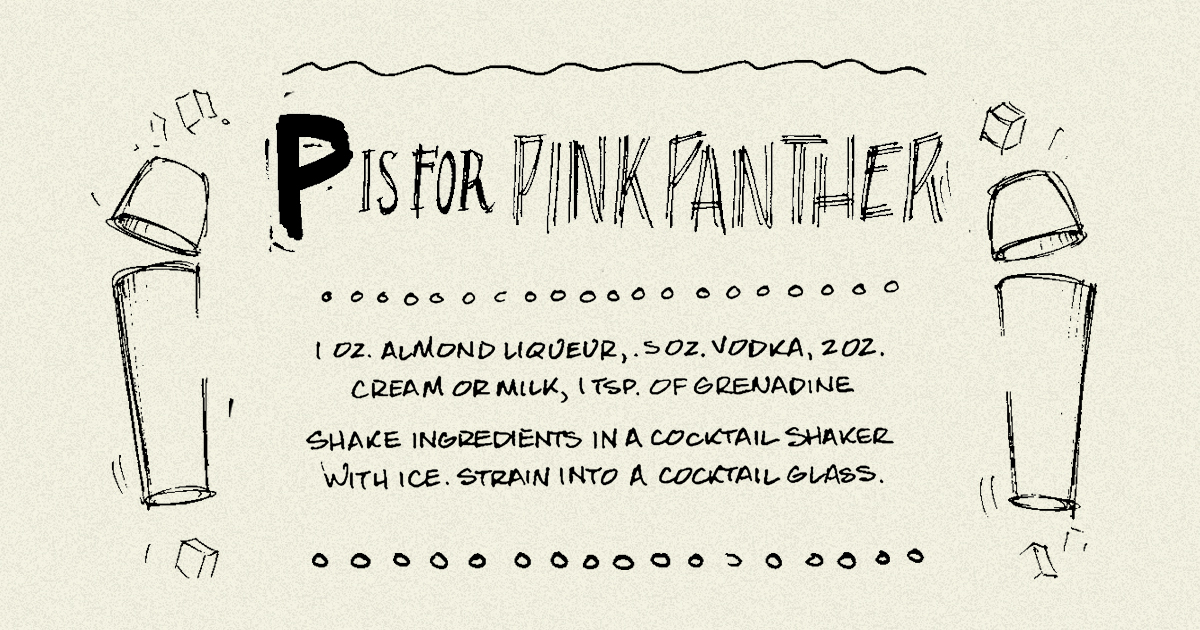 P IS FOR PINK PANTHER
1 OZ. ALMOND LIQUEUR, .5 OZ. VODKA, 2 OZ.
CREAM OR MILK, 1 TSP. OF GRENADINE
SHAKE INGREDIENTS IN A COCKTAIL SHAKER
WITH ICE. STRAIN INTO A COCKTAIL GLASS.